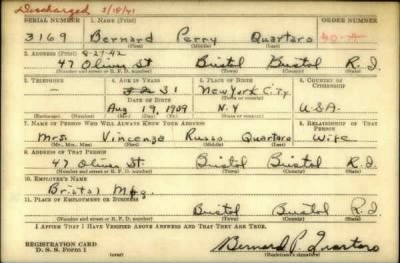 Discharged 3/18/41
SERIAL NUMBER 1. Name (Print) ORDER NUMBER
3169 Bernard Perry Quartaro
(First) (Middle) (Last)
2. Address (Print) 8-27-42
47 Oliver St Bristol Bristol R.I.
(Number and street or R. F. D. number) (Town) (County) (State)
3. Telephone 4. Age in Years 5. Place of Birth 6. Country of Citizenship
31 New York City
Date of Birth
Aug 19, 1909 N.Y U.S.A.
(Mo.) (Day) (Yr.) (State or country)
7. Name of Person Who Will Always Know Your Address 8. Relationship of That Person
Mrs. Vincenza Russo Quartaro Wife
(Mr., Mrs., Miss) (First) (Middle) (Last)
9. Address of That Person
47 Oliver St. Bristol Bristol R.I.
(Number and street or R. F. D. number) (Town) (County) (State)
10. Employer's Name
Bristol Mfg.
11. Place of Employment or Business
Bristol Bristol R.I.
(Number and street or R. F. D. number) (Town) (County) (State)
I Affirm That I Have Verified Above Answers and That They Are True.
REGISTRATION CARD
D. S. S. Form 1 (over) Bernard P. Quartaro
(Registrant's signature)